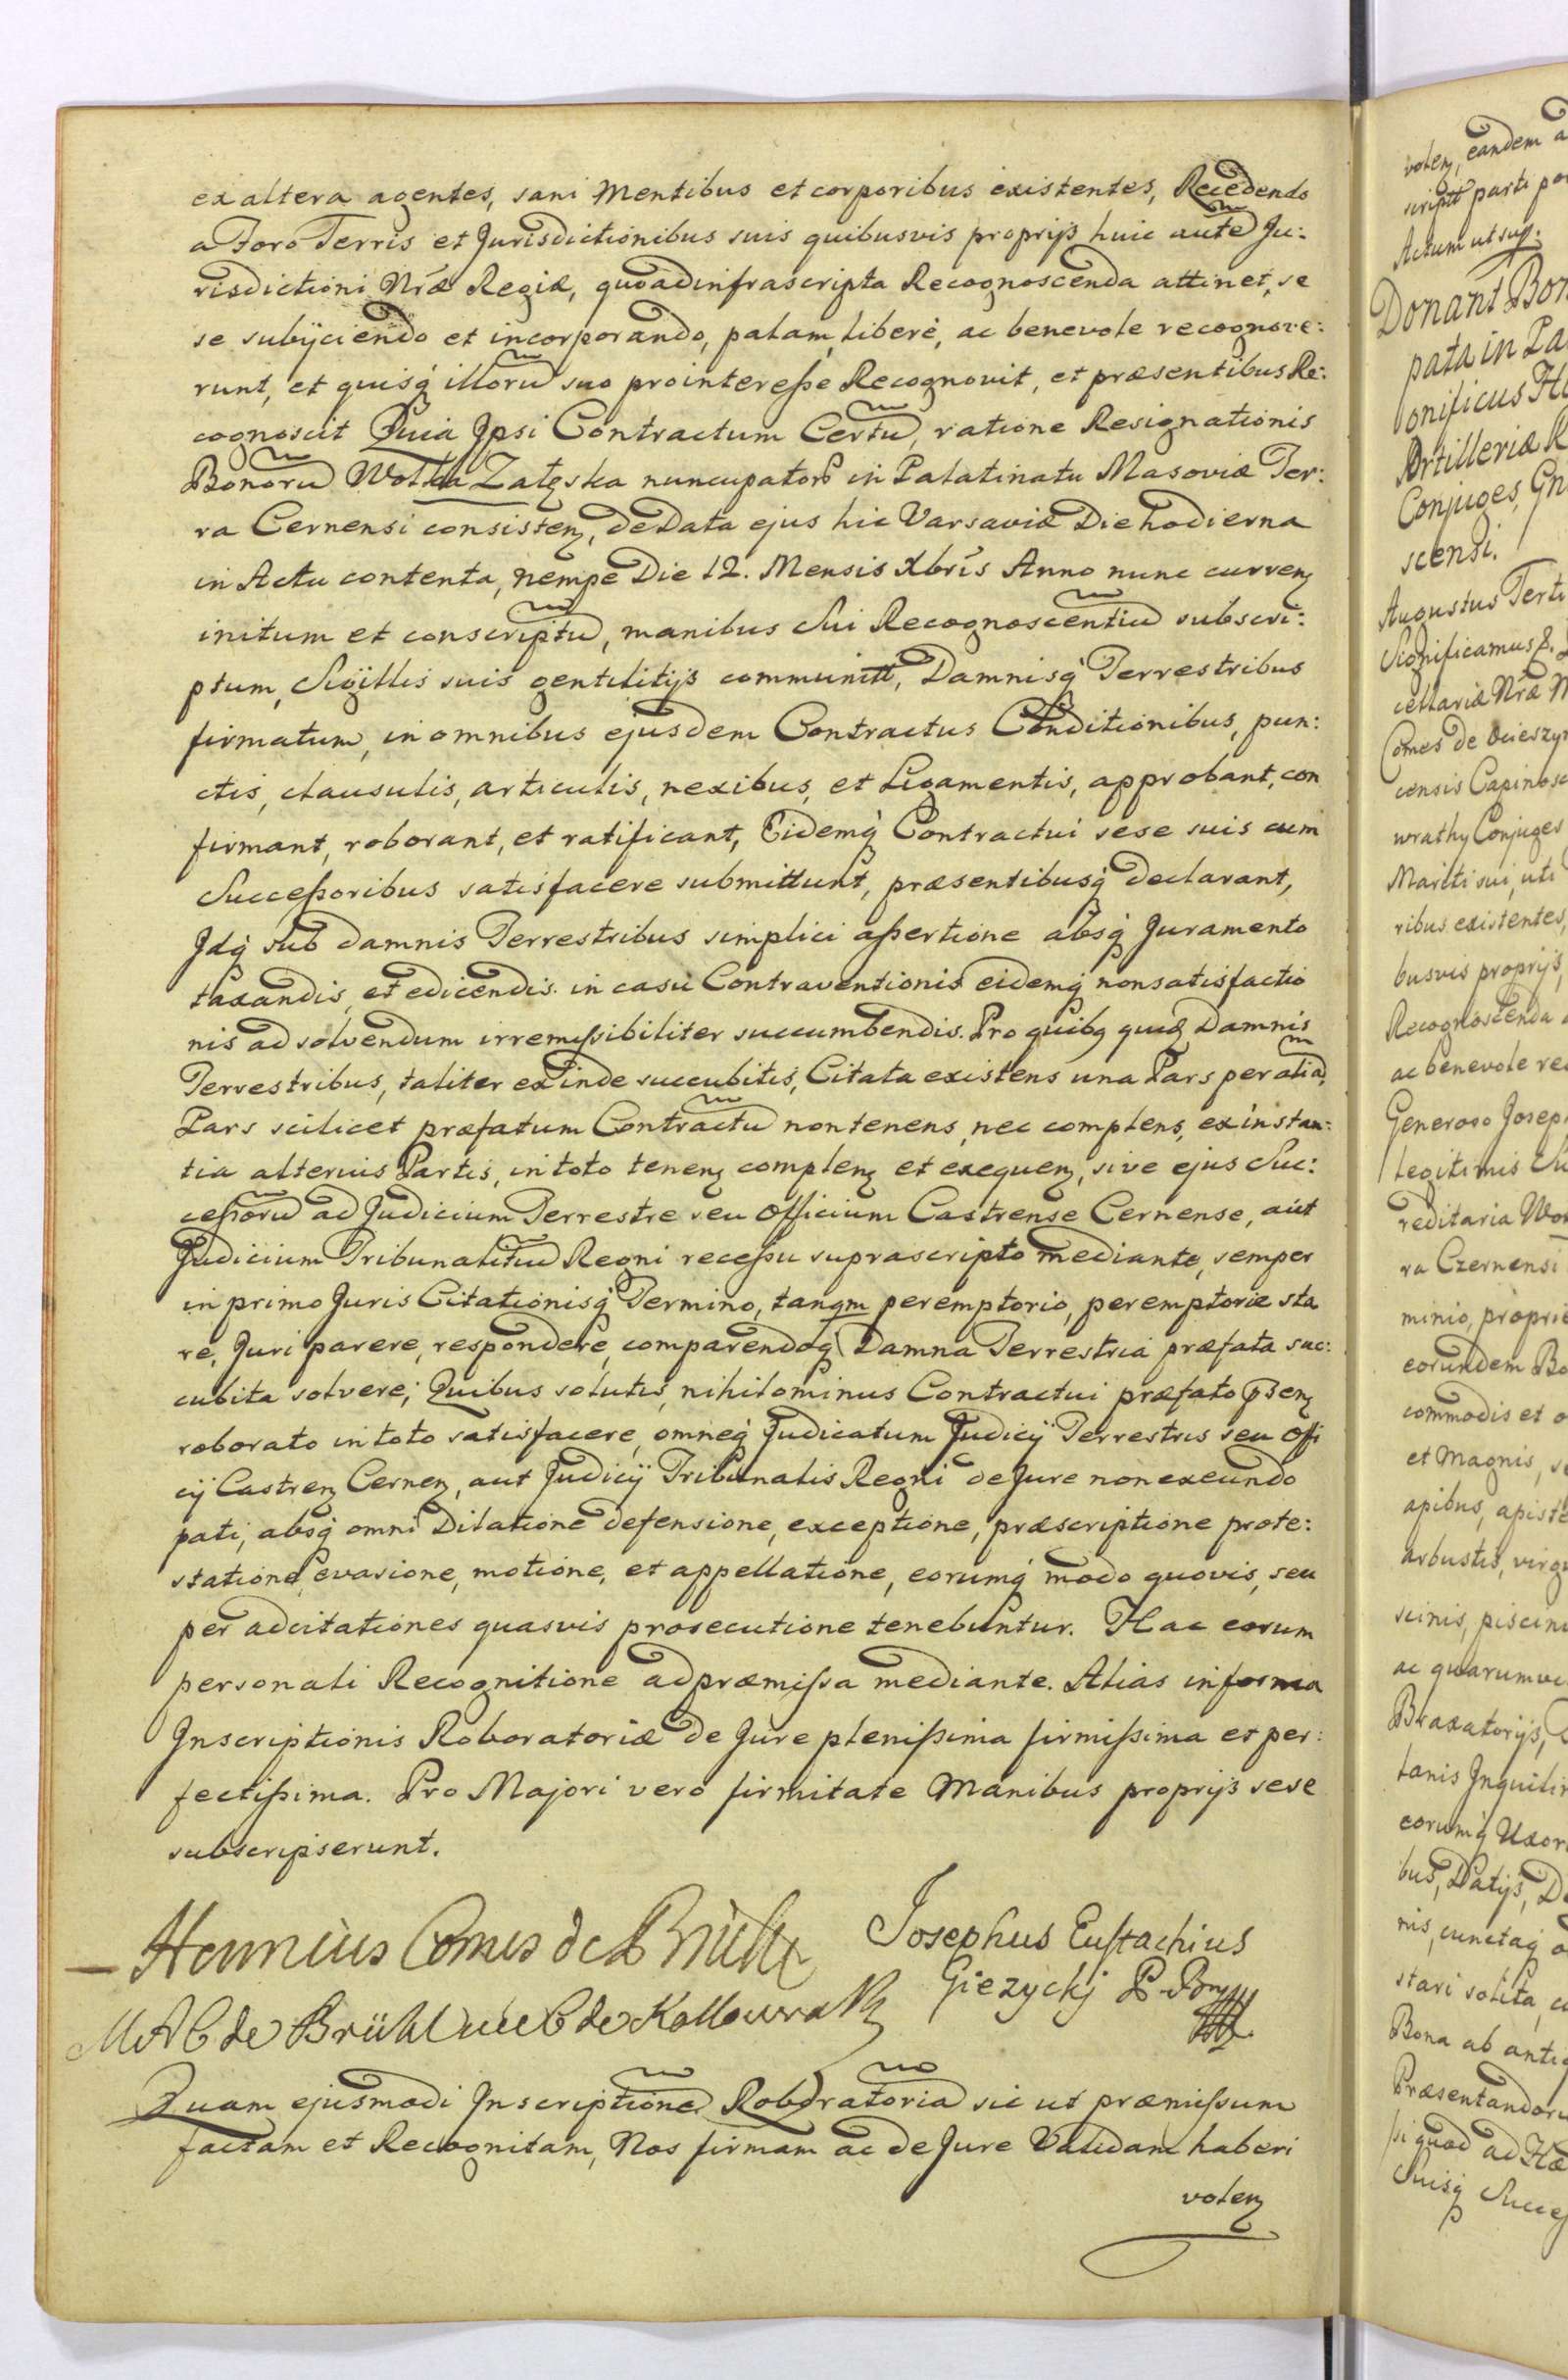 ex altera agentes, sani Mentibus et corporibus existentes, Recedendo
a Foro Terris et Jurisdictionibus suis quibusvis proprijs huic aute Ju:
risdictioni Nræ Regiæ, quoad infrascripta Recognoscenda attinet, se
se subijciendo et incorporando, palam, liberè, ac benevole recognove:
runt, et quisq́ illorũ suo pro interesse Recognovit, et præsentibus Re:
cognoscit Quia Ipsi Contractum Certũ, ratione Resignationis
Bonorũ Wolka Załęska nuncupator̃ in Palatinatu Masoviæ Ter:
ra Cernensi consisteñ, de Data ejus hic Varsaviæ Die hodierna
in Actu contenta, nempe Die 12. Mensis Xbris Anno nunc curreñ
initum et conscriptũ, manibus Sui Recognoscentiũ subscri:
ptum, Sigillis suis gentilitijs communitt, Damnisq́ Terrestribus
firmatum, in omnibus ejusdem Contractus Conditionibus, pun:
ctis, clausulis, articulis, nexibus, et Ligamentis, approbant, con
firmant, roborant, et ratificant, Eidemq́ Contractui sese suis cum
Successoribus satisfacere submittunt, præsentibusq́ declarant,
Idq́ sub damnis Terrestribus simplici assertione absq́ Juramento
taxandis, et edicendis in casu Contraventionis eidemq́ nonsatisfactio
nis ad solvendum irremissibiliter succumbendis. Pro quibq quid Damnis
Terrestribus, taliter exinde succubitis, Citata existens una Pars per aliã,
Pars scilicet præfatum Contractũ non tenens, nec complens, ex instan:
tia alterius Partis, in toto teneñ compleñ et exequeñ, sive ejus Suc:
cessorũ ad Judicium Terrestre seu Officium Castrense Cernense, aut
Judicium Tribunalitiũ Regni recessu suprascripto mediante, semper
in primo Juris Citationisq́ Termino, tanqm peremptorio, peremptoriæ sta
re, Juri parere, respondere, comparendoq́ Damna Terrestria præfata suc:
cubita solvere; Quibus solutis, nihilominus Contractui præfato pñseñ
roborato in toto satisfacere, omneq́ Judicatum Judicij Terrestris seu Offi
cij Castreñ Cerneñ, aut Judicij Tribunalis Regni de Jure non exeundo
pati, absq́ omni Dilatione defensione, exceptione, præscriptione prote:
statione, evasione, motione, et appellatione, eorumq́ modo quovis, seu
per adcitationes quasvis prosecutione tenebuntur. Hac eorum
personali Recognitione ad præmissa mediante. Alias in forma
Inscriptionis Roboratoriæ de Jure plenissima firmissima et per:
fectissima. Pro Majori vero firmitate Manibus proprijs sese
subscripserunt.
Henricus Comes de Brühl
Josephus Eustachius
Giezyckj
MAC de Brühl née C de Kollowrath
Quam ejusmodi Inscriptionẽ Roboratoriã sic ut præmissum
factam et Recognitam, Nos firmam ac de Jure Validam haberi
voleñ
voleñ, eandem a
scriptt parti por
Actum ut sup.
Donant Bon
pata in Pa
onificus He
Artilleriæ R
Conjuges, Gn
scensi.
Augustus Terti
Significamus &.
cellariæ Nræ M
Comes de Ocieszyn
censis Capinosc
wrathy Conjuges
Mariti sui, uti
ribus existentes,
busvis proprijs,
Recognoscenda a
ac benevole rec
Generoso Joseph
legitimis Su
reditaria Wol
ra Czernensi
minio, proprie
eorundem Bo
commodis et o
et Magnis, se
apibus, apiste
arbustis, virgu
scinis, piscinu
ac quarumvi
Braxatorijs,
tanis Inquilin
eorumq́ Uxori
bus, Datijs, D
nis, cunctaq́ a
stari solita, c
Bona ab antiq
Præsentandoru
si quod ad Hæ
Suisq́ Succes